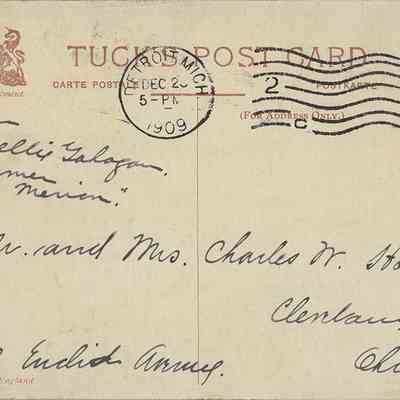 TUCK'S POST CARD
CARTE POSTALE
POSTKARTE
(FOR ADDRESS ONLY.)
DETROIT, MICH
DEC 2
5-PM
1909
2
C
ellie Gahagan.
mer
Merion".
r. and Mrs. Charles W. Ho
Cleveland
Euclid Avenue.
Ohi
England